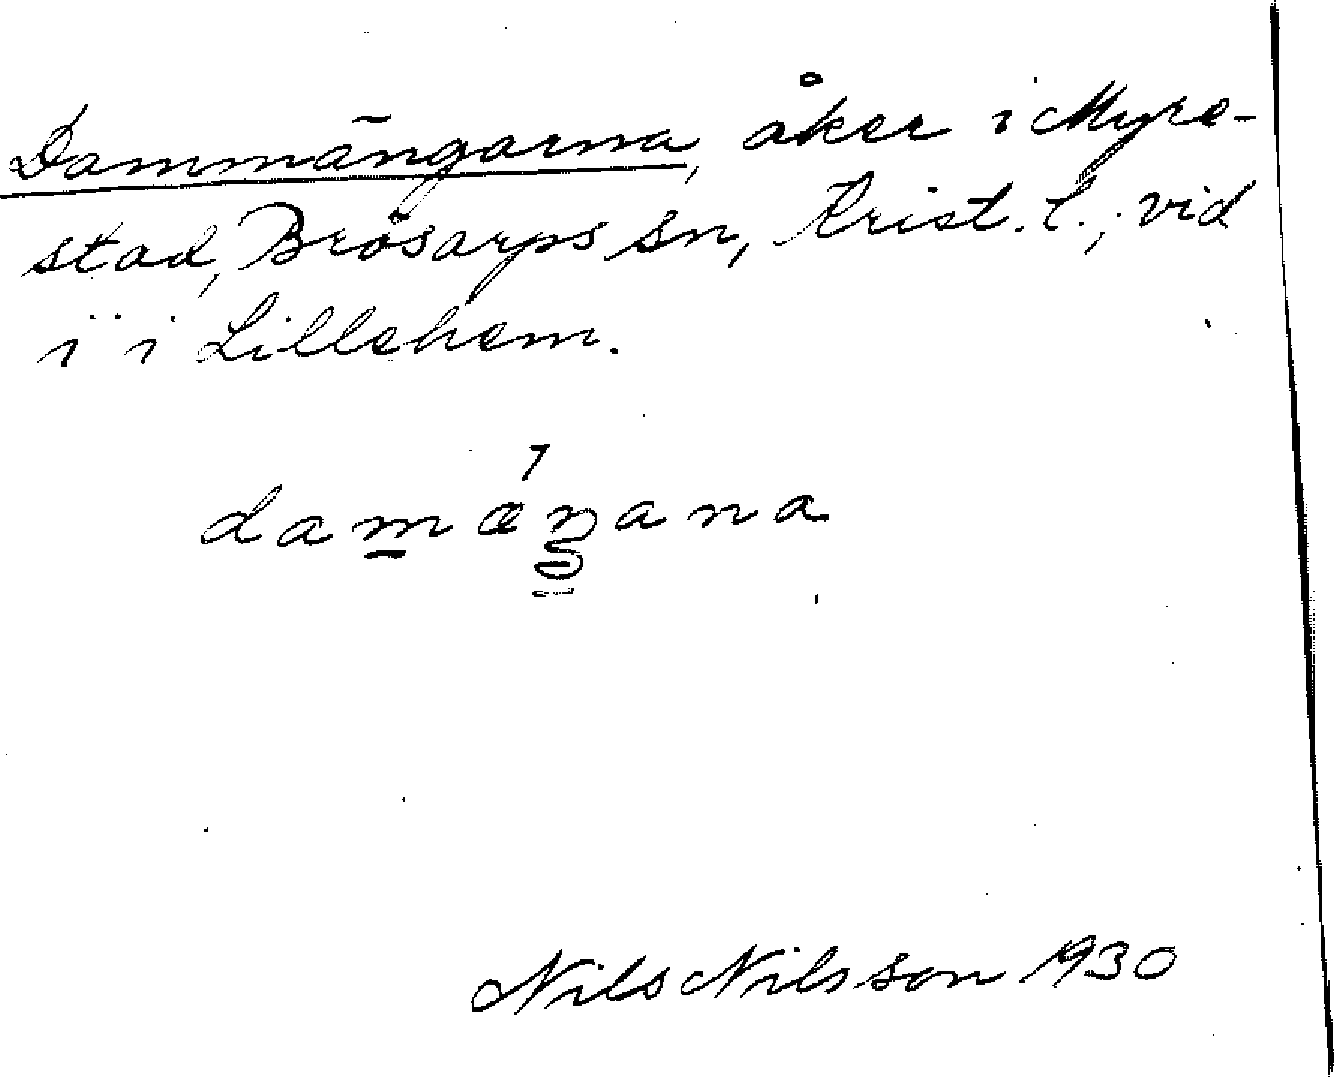 Dammängarna, åker i Myre-
stad, Brösarps sn, Krist. l., vid
i i Lillehem.
damæŋana
Nils Nilsson 1930